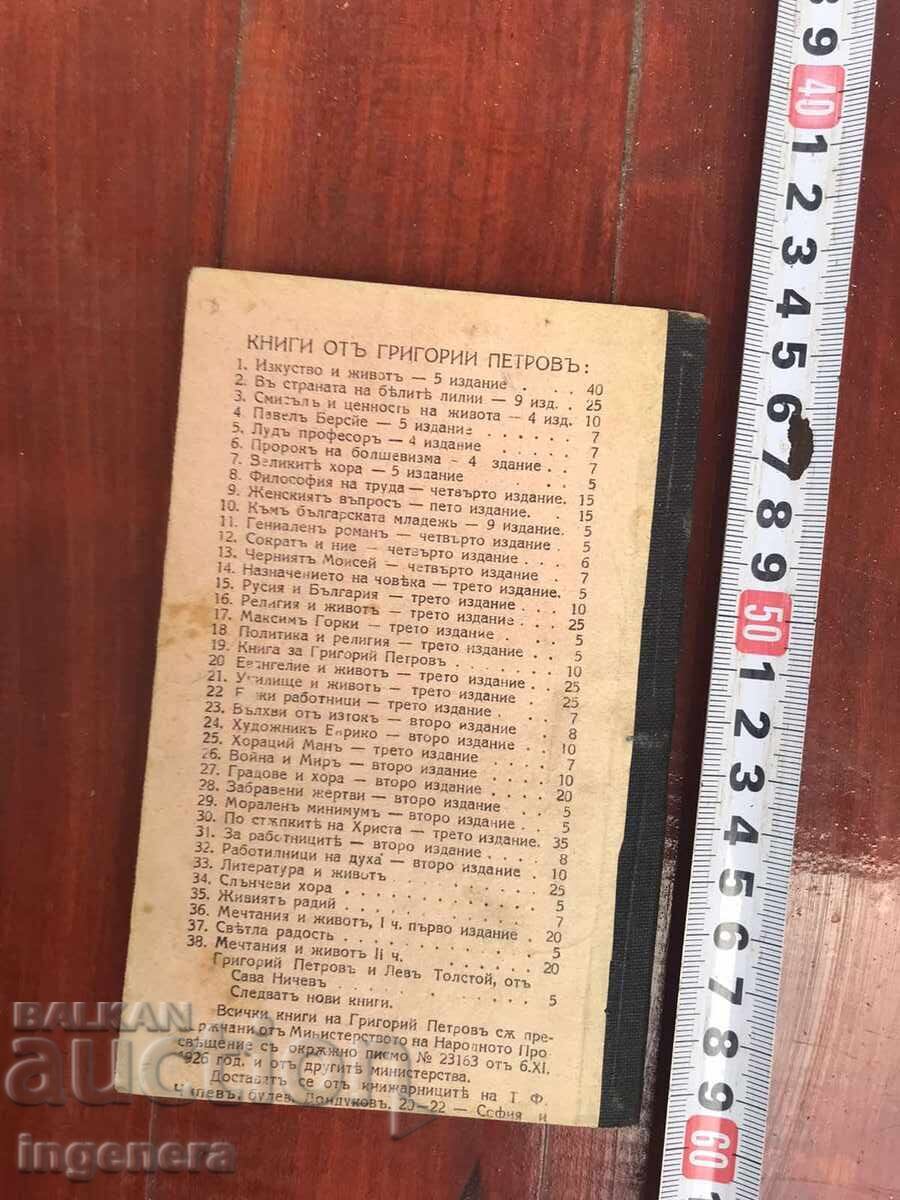 КНИГИ ОТЪ ГРИГОРИЙ ПЕТРОВЪ:
1. Изкуство и животъ — 5 издание . . . . 40
2. Въ страната на бѣлитѣ лилии — 9 изд. . 25
3. Смисълъ и ценность на живота — 4 изд. 10
4. Павелъ Берсйе — 5 издание . . . . . . 7
5. Лудъ професоръ — 4 издание . . . . . . 7
6. Пророкъ на болшевизма — 4 здание . . 7
7. Великитѣ хора — 5 издание . . . . . 5
8. Философия на труда — четвърто издание. 15
9. Женскиятъ въпросъ — пето издание. . 15
10. Къмъ българската младежь — 9 издание. 5
11. Гениаленъ романъ — четвърто издание . 5
12. Сократъ и ние — четвърто издание . . 6
13. Черниятъ Моисей — четвърто издание . 7
14. Назначението на човѣка — трето издание. 5
15. Русия и България — трето издание . . . 10
16. Религия и животъ — трето издание . . . 25
17. Максимъ Горки — трето издание . . . . 5
18. Политика и религия — трето издание . . 5
19. Книга за Григорий Петровъ . . . . . . 10
20 Евангелие и животъ — трето издание . . 25
21. Училище и животъ — трето издание . . 25
22 Божи работници — трето издание . . . 7
23. Вълхви отъ изтокъ — второ издание . . 8
24. Художникъ Енрико — второ издание . . 10
25. Хораций Манъ — трето издание . . . . 7
26. Война и Миръ — второ издание . . . . 10
27. Градове и хора — второ издание . . . . 20
28. Забравени жертви — второ издание . . . 5
29. Мораленъ минимумъ — второ издание . . 5
30. По стѫпкитѣ на Христа — трето издание. 35
31. За работницитѣ — второ издание . . . . 8
32. Работилници на духа — второ издание . . 10
33. Литература и животъ . . . . . . . . 25
34. Слънчеви хора . . . . . . . . . . 5
35. Живиятъ радий . . . . . . . . . . 7
36. Мечтания и животъ, I ч. първо издание . 20
37. Свѣтла радость . . . . . . . . . . 5
38. Мечтания и животъ II ч. . . . . . . . 20
Григорий Петровъ и Левъ Толстой, отъ
Сава Ничевъ . . . . . . . . . . 5
Следватъ нови книги.
Всички книги на Григорий Петровъ сѫ пре-
поржчани отъ Министерството на Народното Про
свѣщение съ окрѫжно писмо № 23163 отъ 6.XI.
1926 год. и отъ другитѣ министерства.
Доставятъ се отъ книжарницитѣ на Т Ф.
Чипевъ, булев. Дондуковъ, 20—22 — София и
BALKAN
auction
ingenera
39 40 1 2 3 4 5 6 7 8 9 50 1 2 3 4 5 6 7 8 9 60